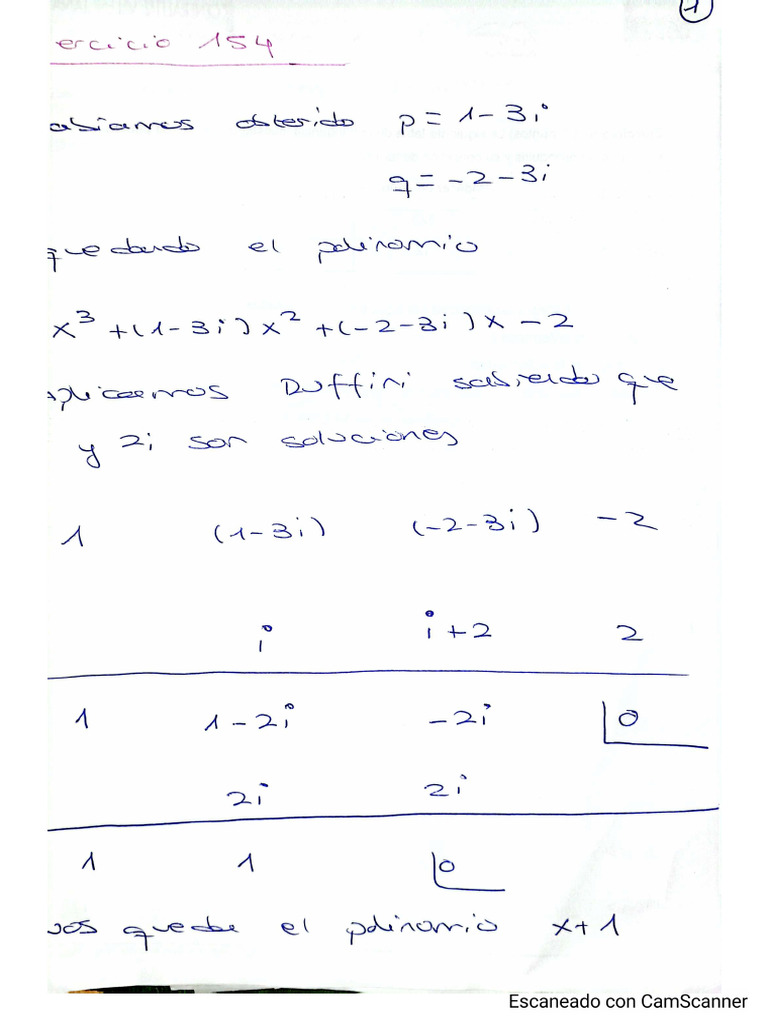 1
ercicio 154
abíamos obtenido p = 1 - 3i
q = -2 - 3i
quedando el polinomio
x³ + (1 - 3i) x² + (-2 - 3i) x - 2
plicaremos Ruffini sabiendo que
y 2i son soluciones
1 (1 - 3i) (-2 - 3i) -2
i i + 2 2
1 1 - 2i -2i 0
2i 2i
1 1 0
nos queda el polinomio x + 1
Escaneado con CamScanner